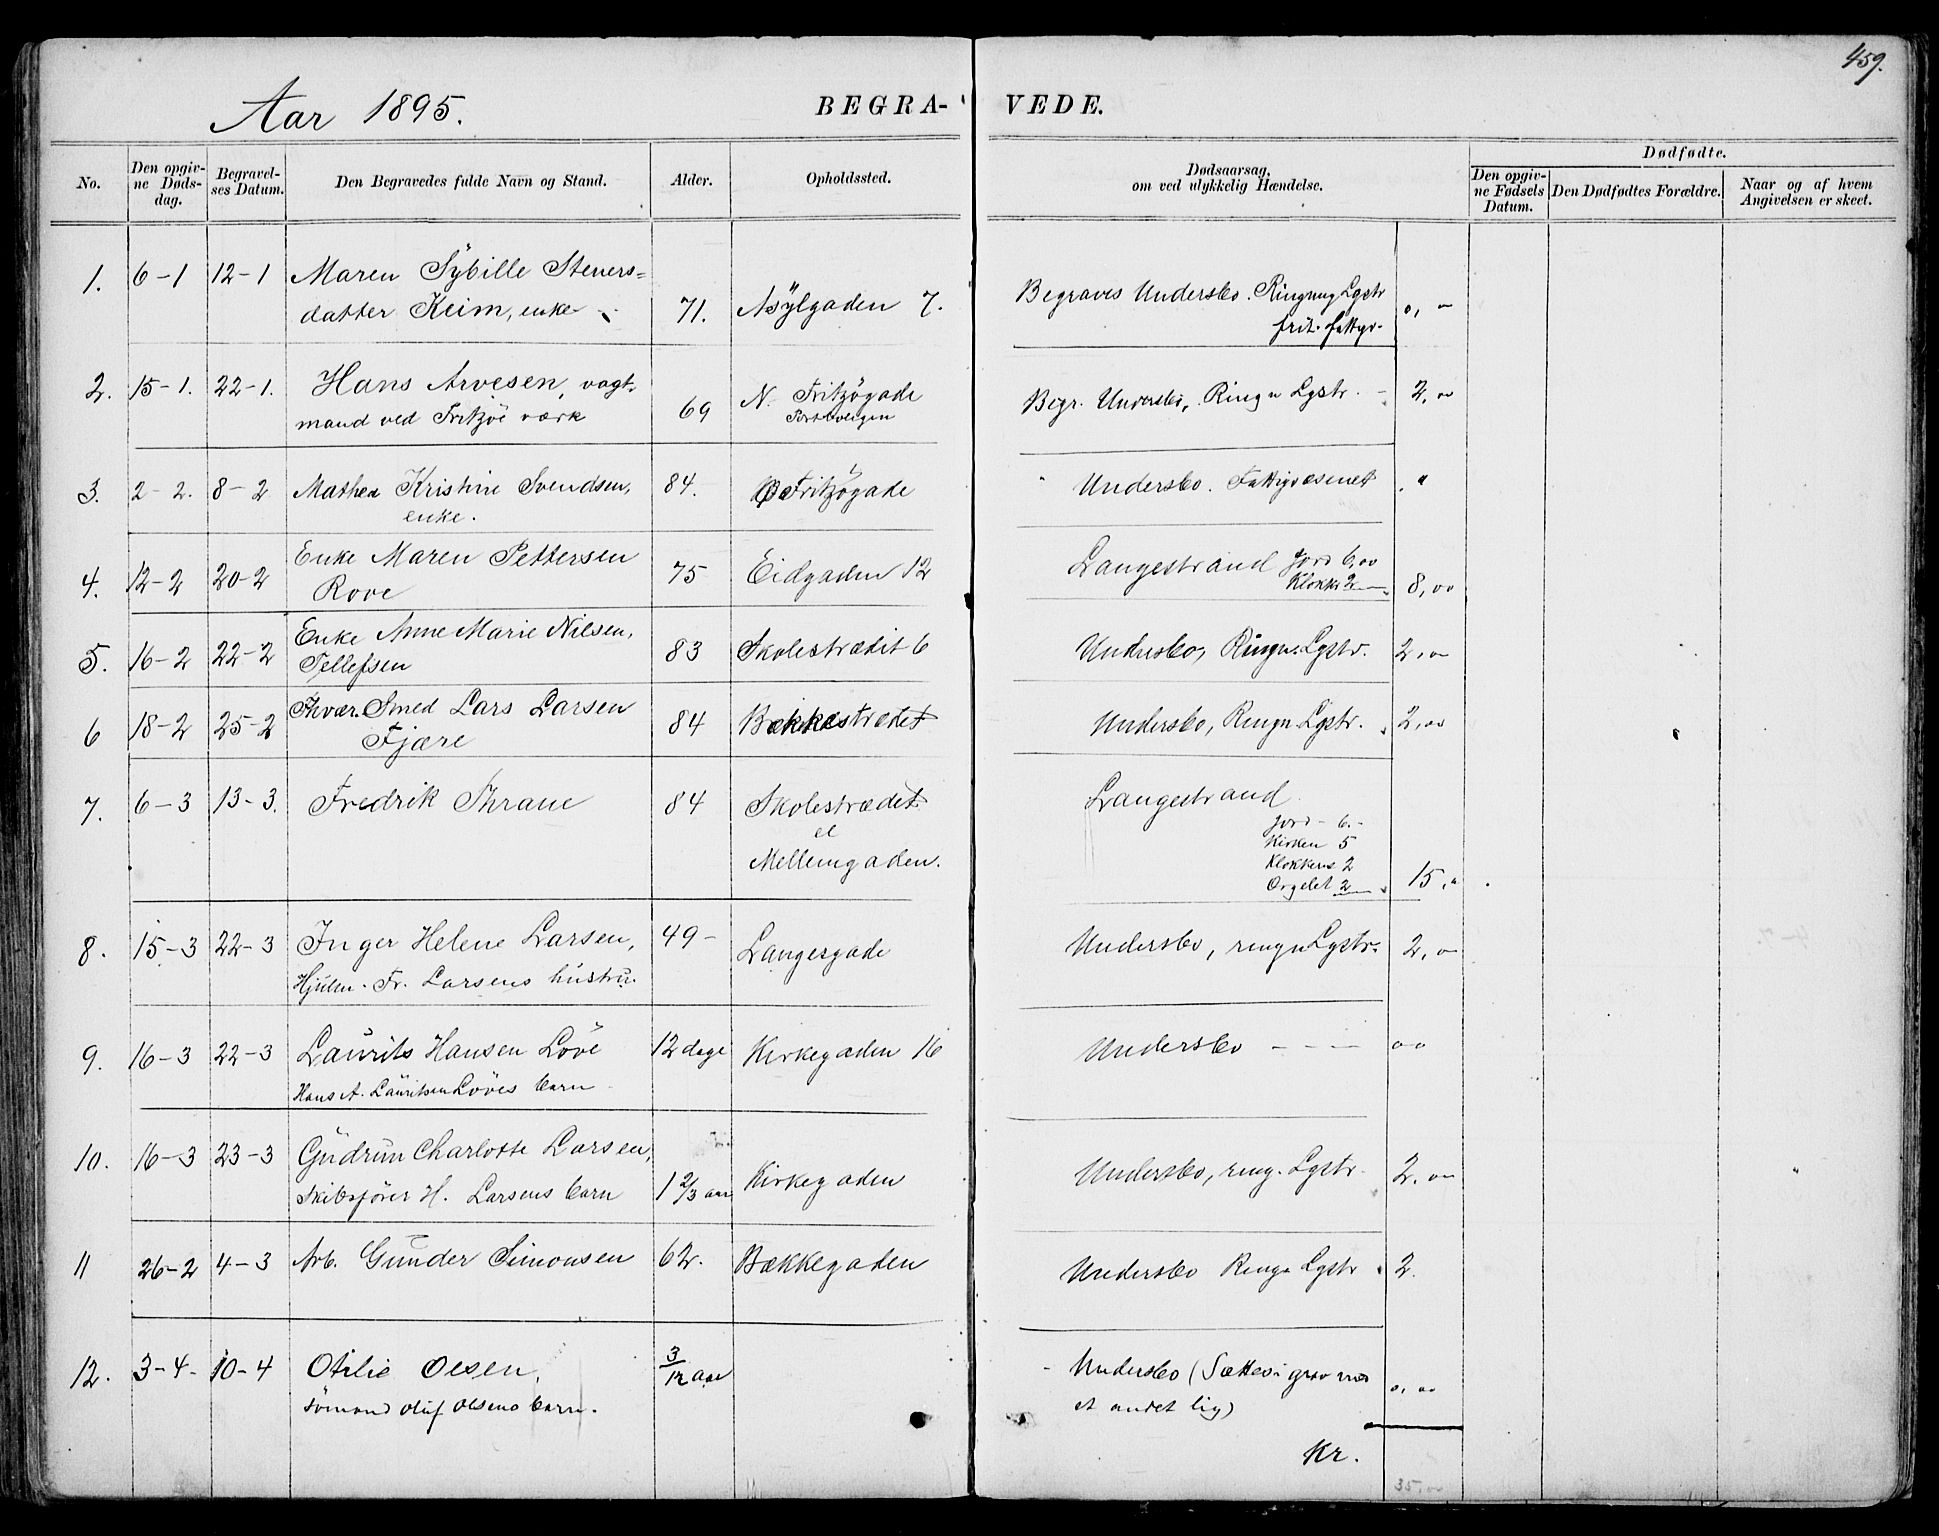 459.
Aar 1895.
BEGRA-
VEDE.
No.
Den opgiv-
ne Døds-
dag.
Begravel-
ses Datum.
Den Begravedes fulde Navn og Stand.
Alder.
Opholdssted.
Dødsaarsag,
om ved ulykkelig Hændelse.
Dødfødte.
Den opgiv-
ne Fødsels
Datum.
Den Dødfødtes Forældre.
Naar og af hvem
Angivelsen er skeet.
1. 6-1 12-1 Maren Sybille Steners=
datter Keim, enke 71. Asylgaden 7. Begraves Undersbo. Ringning Lgstr
frit. fattgv. 0, -
2. 15-1. 22-1. Hans Arvesen, vagt-
mand ved Fritzöe værk 69 N. Fritzögade
Portboligen Begr. Undersbo, Ringn Lgstr. - 2,00
3. 2-2. 8-2 Mathea Kristine Svendsen,
enke. 84. Ø Fritzögade " Undersbo. Fattigvæsenet "
4. 12-2 20-2 Enke Maren Pettersen
Rove 75 Eidgaden 12 Langestrand Jord 6,00
Klokke 2 - 8,00
5. 16-2 22-2 Enke Anne Marie Nilsen,
Tellefsen 83 Skolestrædit 6 Undersbo, Ringn. Lgstr. 2,00
6 18-2 25-2 Thvær. Smed Lars Larsen
Fjære 84 Bækkestrædet Undersbo, Ringn. Lgstr. 2,00
7. 6-3 13-3. Fredrik Thrane 84 Skolestrædet
el
Mellemgaden. Langestrand
Jord - 6.-
Kirken 5
Klokkens 2
Orgelet 2 15,"
8. 15-3 22-3 Inger Helene Larsen,
Hjulm. Fr. Larsens hustru. 49- Langesgade Undersbo, ringn Lgstr. 2,00
9. 16-3 22-3 Laurits Hansen Löve
Hans A. Lauritsen Löves barn 12 dage Kirkegaden 16 Undersbo - - - 00
10. 16-3 23-3 Gudrun Charlotte Larsen,
Skibsförer H. Larsens barn 1 2/3 aar Kirkegaden Undersbo, ring. Lgstr. 2,00
11 26-2 4-3 Arb. Gunder Simonsen 62. Bækkegaden Undersbo Ringn Lgstr 2.
12. 3-4. 10-4 Otilie Olsen,
sömand Oluf Olsens barn. 3/12 aar - Undersbo (Sættes i grav med
et andet lig) 0,00
Kr.
35,00